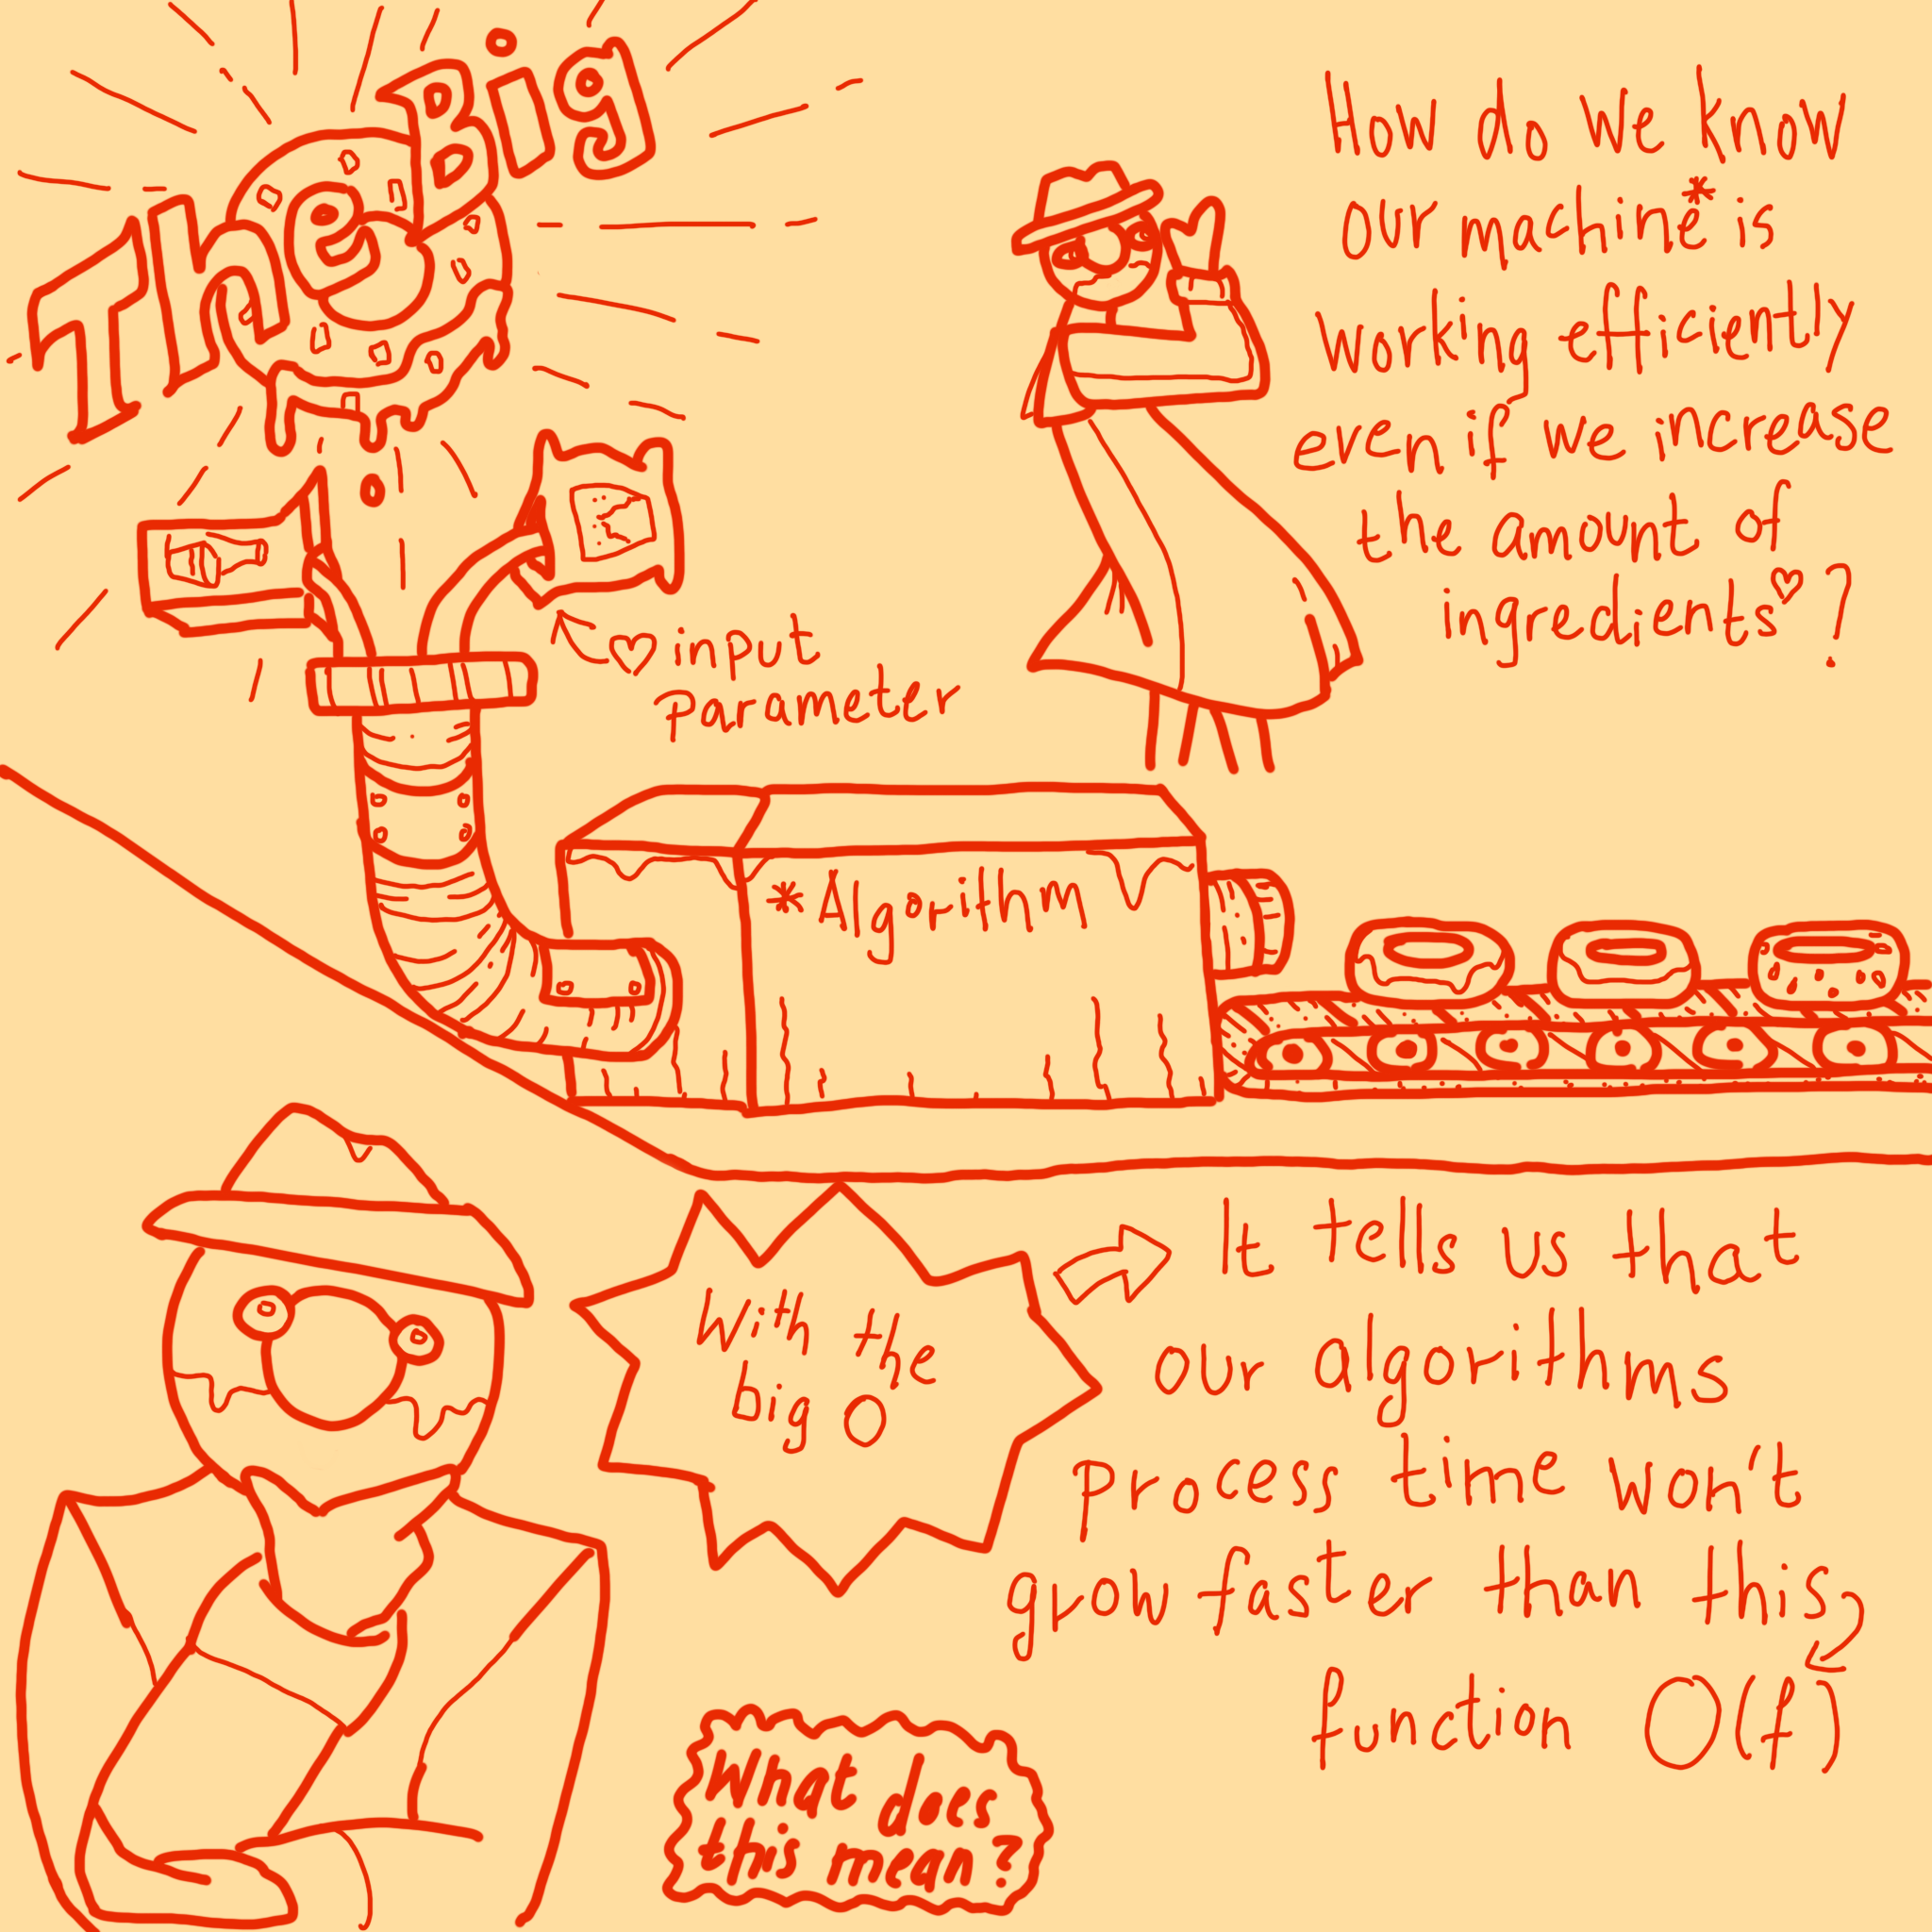 The Big
O
How do we know
our machine* is
working efficiently
even if we increase
the amount of
ingredients♡?
♡ input
parameter
*Algorithm
With the
big O
It tells us that
our algorithms
process time won't
grow faster than this
function O(f)
What does
this mean?